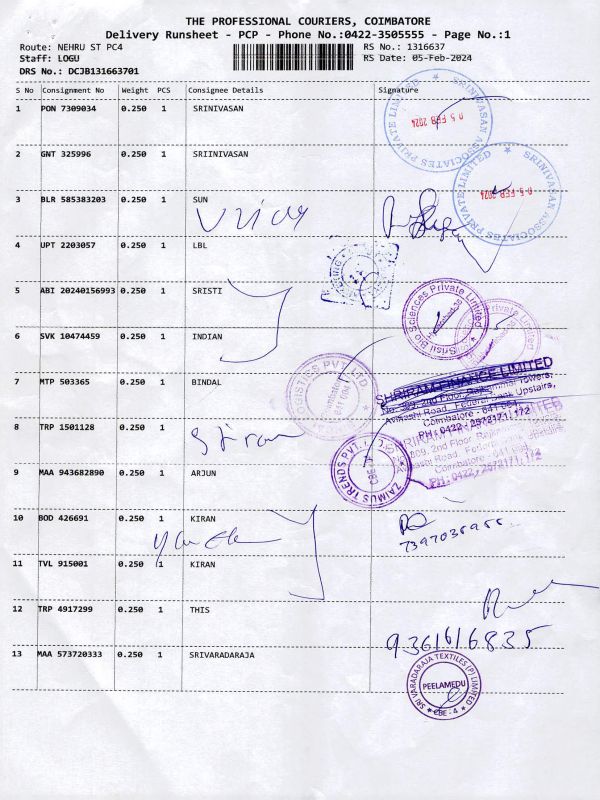 THE PROFESSIONAL COURIERS, COIMBATORE
Delivery Runsheet - PCP - Phone No.:0422-3505555 - Page No.:1
Route: NEHRU ST PC4 RS No.: 1316637
Staff: LOGU RS Date: 05-Feb-2024
DRS No.: DCJB131663701
S No Consignment No Weight PCS Consignee Details Signature
1 PON 7309034 0.250 1 SRINIVASAN
SRINIVASAN ASSOCIATES PRIVATE LIMITED
05 FEB 2024
2 GNT 325996 0.250 1 SRIINIVASAN
SRINIVASAN ASSOCIATES PRIVATE LIMITED
05 FEB 2024
3 BLR 585383203 0.250 1 SUN
4 UPT 2203057 0.250 1 LBL
5 ABI 20240156993 0.250 1 SRISTI
Bio Sciences Private Limited
6 SVK 10474459 0.250 1 INDIAN
7 MTP 503365 0.250 1 BINDAL
SHRIRAM FINANCE LIMITED
Avinashi Road, Federal Bank Upstairs,
Coimbatore - 641
PH: 0422 - 2572171, 172
8 TRP 1501128 0.250 1 BINDAL
809, 2nd Floor
Coimbatore - 641
PH: 0422 - 2572171, 172
9 MAA 943682890 0.250 1 ARJUN
ZAIMUS TRENDS PVT.
10 BOD 426691 0.250 1 KIRAN
11 TVL 915001 0.250 1 KIRAN
12 TRP 4917299 0.250 1 THIS
9361616835
13 MAA 573720333 0.250 1 SRIVARADARAJA
SRI VARADARAJA TEXTILES (P) LIMITED
PEELAMEDU
CBE - 4